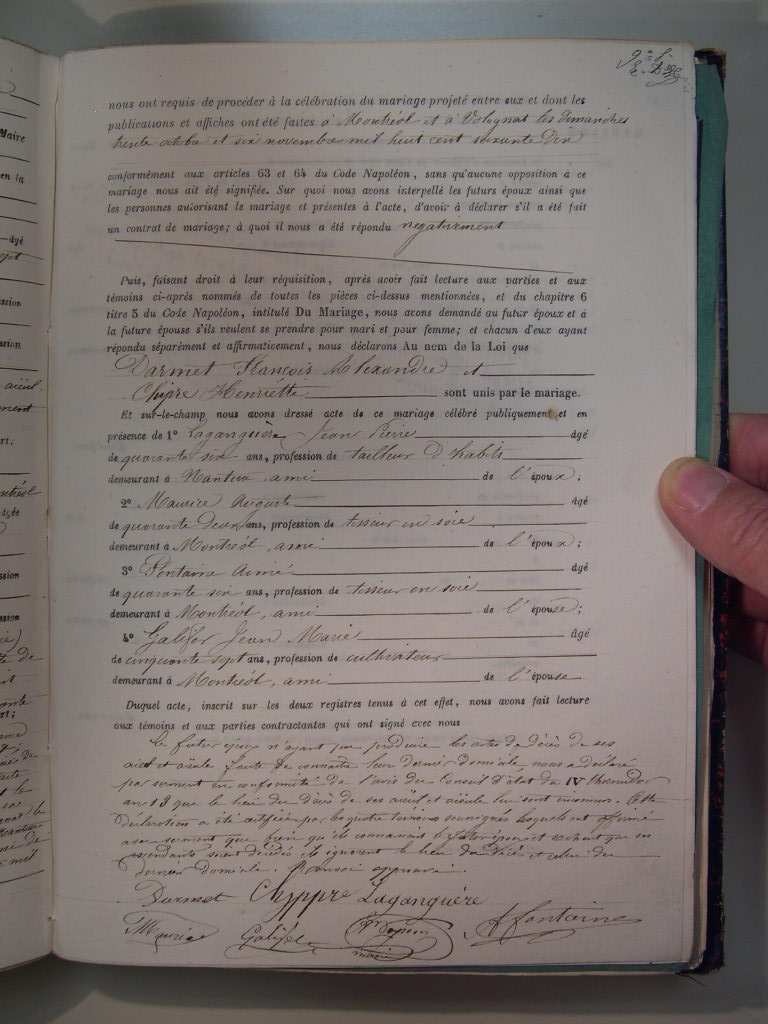 nous ont requis de procéder à la célébration du mariage projeté entre eux et dont les
publications et affiches ont été faites à Montréal et à Volognat les dimanches
trente octobre et six novembre mil huit cent soixante dix
conformément aux articles 63 et 64 du Code Napoléon, sans qu'aucune opposition à ce
mariage nous ait été signifiée. Sur quoi nous avons interpellé les futurs époux ainsi que
les personnes autorisant le mariage et présentes à l'acte, d'avoir à déclarer s'il a été fait
un contrat de mariage; à quoi il nous a été répondu négativement
Puis, faisant droit à leur réquisition, après avoir fait lecture aux parties et aux
témoins ci-après nommés de toutes les pièces ci-dessus mentionnées, et du chapitre 6
titre 5 du Code Napoléon, intitulé Du Mariage, nous avons demandé au futur époux et à
la future épouse s'ils veulent se prendre pour mari et pour femme; et chacun d'eux ayant
répondu séparément et affirmativement, nous déclarons Au nom de la Loi que
Darmet François Alexandre et
Chipre Henriette sont unis par le mariage.
Et sur-le-champ, nous avons dressé acte de ce mariage célébré publiquement et en
présence de 1° Laganguère Jean Pierre âgé
de quarante six ans, profession de tailleur d'habits
demeurant à Nantua, ami de l'époux;
2° Maurice Auguste âgé
de quarante deux ans, profession de tisseur en soie
demeurant à Montréal, ami de l'époux;
3° Fontaine Aimé âgé
de quarante six ans, profession de tisseur en soie
demeurant à Montréal, ami de l'épouse;
4° Galifer Jean Marie âgé
de cinquante sept ans, profession de cultivateur
demeurant à Montréal, ami de l'épouse
Duquel acte, inscrit sur les deux registres tenus à cet effet, nous avons fait lecture
aux témoins et aux parties contractantes qui ont signé avec nous
Le futur époux n'ayant pu produire les actes de décès de ses
aïeul et aïeule faute de connaître leur dernier domicile, nous a déclaré
par serment en conformité de l'avis du Conseil d'état du IV thermidor
an 13 que le lieu du décès de ses aïeul et aïeule lui sont inconnus. Cette
déclaration a été certifiée par les quatre témoins soussignés lesquels ont affirmé
avec serment que bien qu'ils connaissent le futur époux et sachant que ses
ascendants soient décédés ils ignorent le lieu du décès et celui du
dernier domicile.
Darmet Chyppre Laganguère
Maurice Galifer maire A fontaine